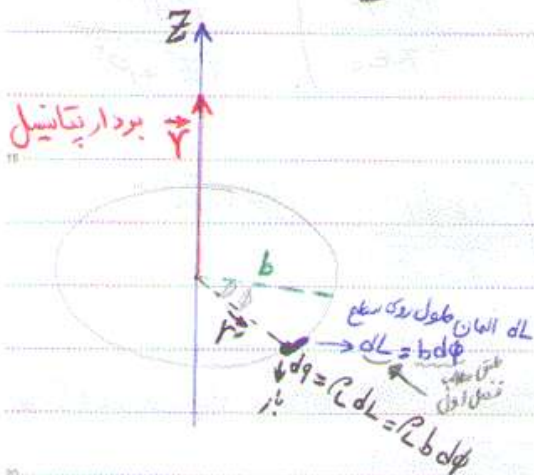 Z
بردار پتانسیل
r
b
dL المان طول روی سطح
dL = bdφ
طبق مطالب
فصل اول
r'
dq = ρL dL = ρL b dφ
بار